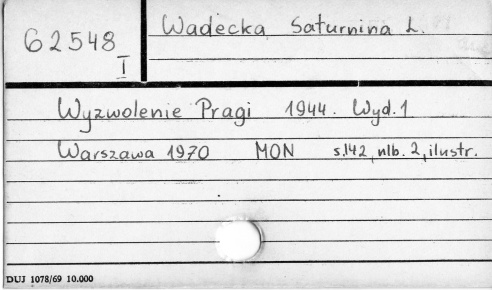 62548
I
Wadecka Saturnina L.
Wyzwolenie Pragi 1944. Wyd. 1
Warszawa 1970 MON s.142, nlb. 2, ilustr.
DUJ 1078/69 10.000